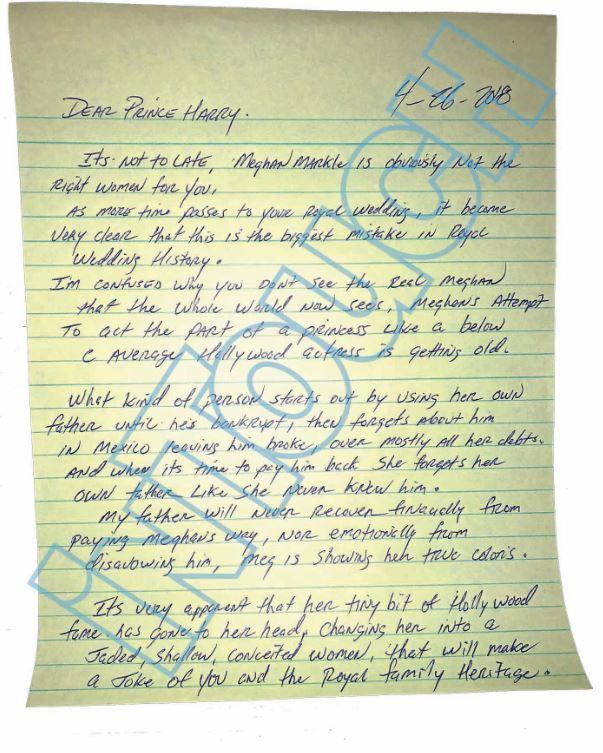 4-26-2018
DEAR PRINCE HARRY.
Its not to LATE, Meghan Markle is obviously Not the
Right women for you,
As more time passes to your Royal wedding, it became
very clear that this is the biggest mistake in Royal
Wedding History.
Im confused why you Don't see the Real Meghan
that the whole world Now sees, Meghans Attempt
To act the part of a princess Like a below
C Average Hollywood actress is getting old.
What kind of person starts out by using her own
father until he's bankrupt, then forgets about him
in Mexico leaving him broke, over mostly all her debts.
And when its time to pay him back She forgets her
own father Like She Never Knew him.
My father will Never recover financially from
paying Meghans way, Nor emotionally from
disavowing him, Meg is Showing her true colors.
It's very apparent that her tiny bit of Hollywood
fame has gone to her head, Changing her into a
Jaded, Shallow, conceited women, that will make
a Joke of you and the Royal family Heritage.
inTouch